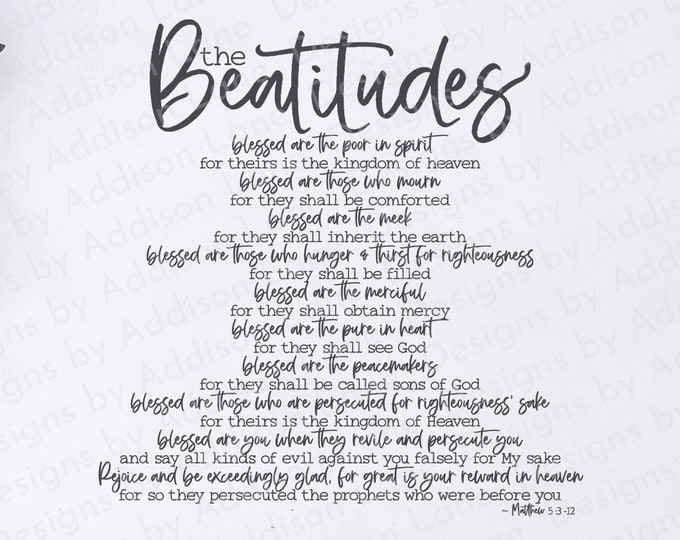 the
Beatitudes
blessed are the poor in spirit
for theirs is the kingdom of heaven
blessed are those who mourn
for they shall be comforted
blessed are the meek
for they shall inherit the earth
blessed are those who hunger & thirst for righteousness
for they shall be filled
blessed are the merciful
for they shall obtain mercy
blessed are the pure in heart
for they shall see God
blessed are the peacemakers
for they shall be called sons of God
blessed are those who are persecuted for righteousness' sake
for theirs is the kingdom of Heaven
blessed are you when they revile and persecute you
and say all kinds of evil against you falsely for My sake
Rejoice and be exceedingly glad, for great is your reward in heaven
for so they persecuted the prophets who were before you
~ Matthew 5:3-12
Designs by Addison Lane